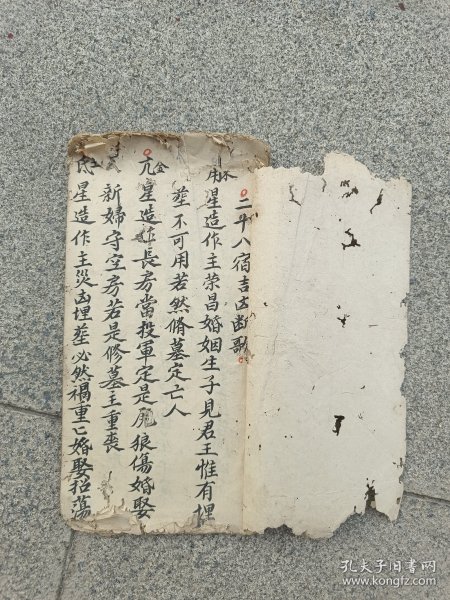 二十八宿吉凶断歌
角木星造作主荣昌婚姻生子見君王惟有埋
塟不可用若然脩墓定亡人
亢金星造作長房當投軍定是虎狼傷婚娶
新婦守空房若是修墓主重喪
氐土星造作主災凶埋塟必然禍重亡婚娶招蕩
孔夫子旧书网
www.kongfz.com